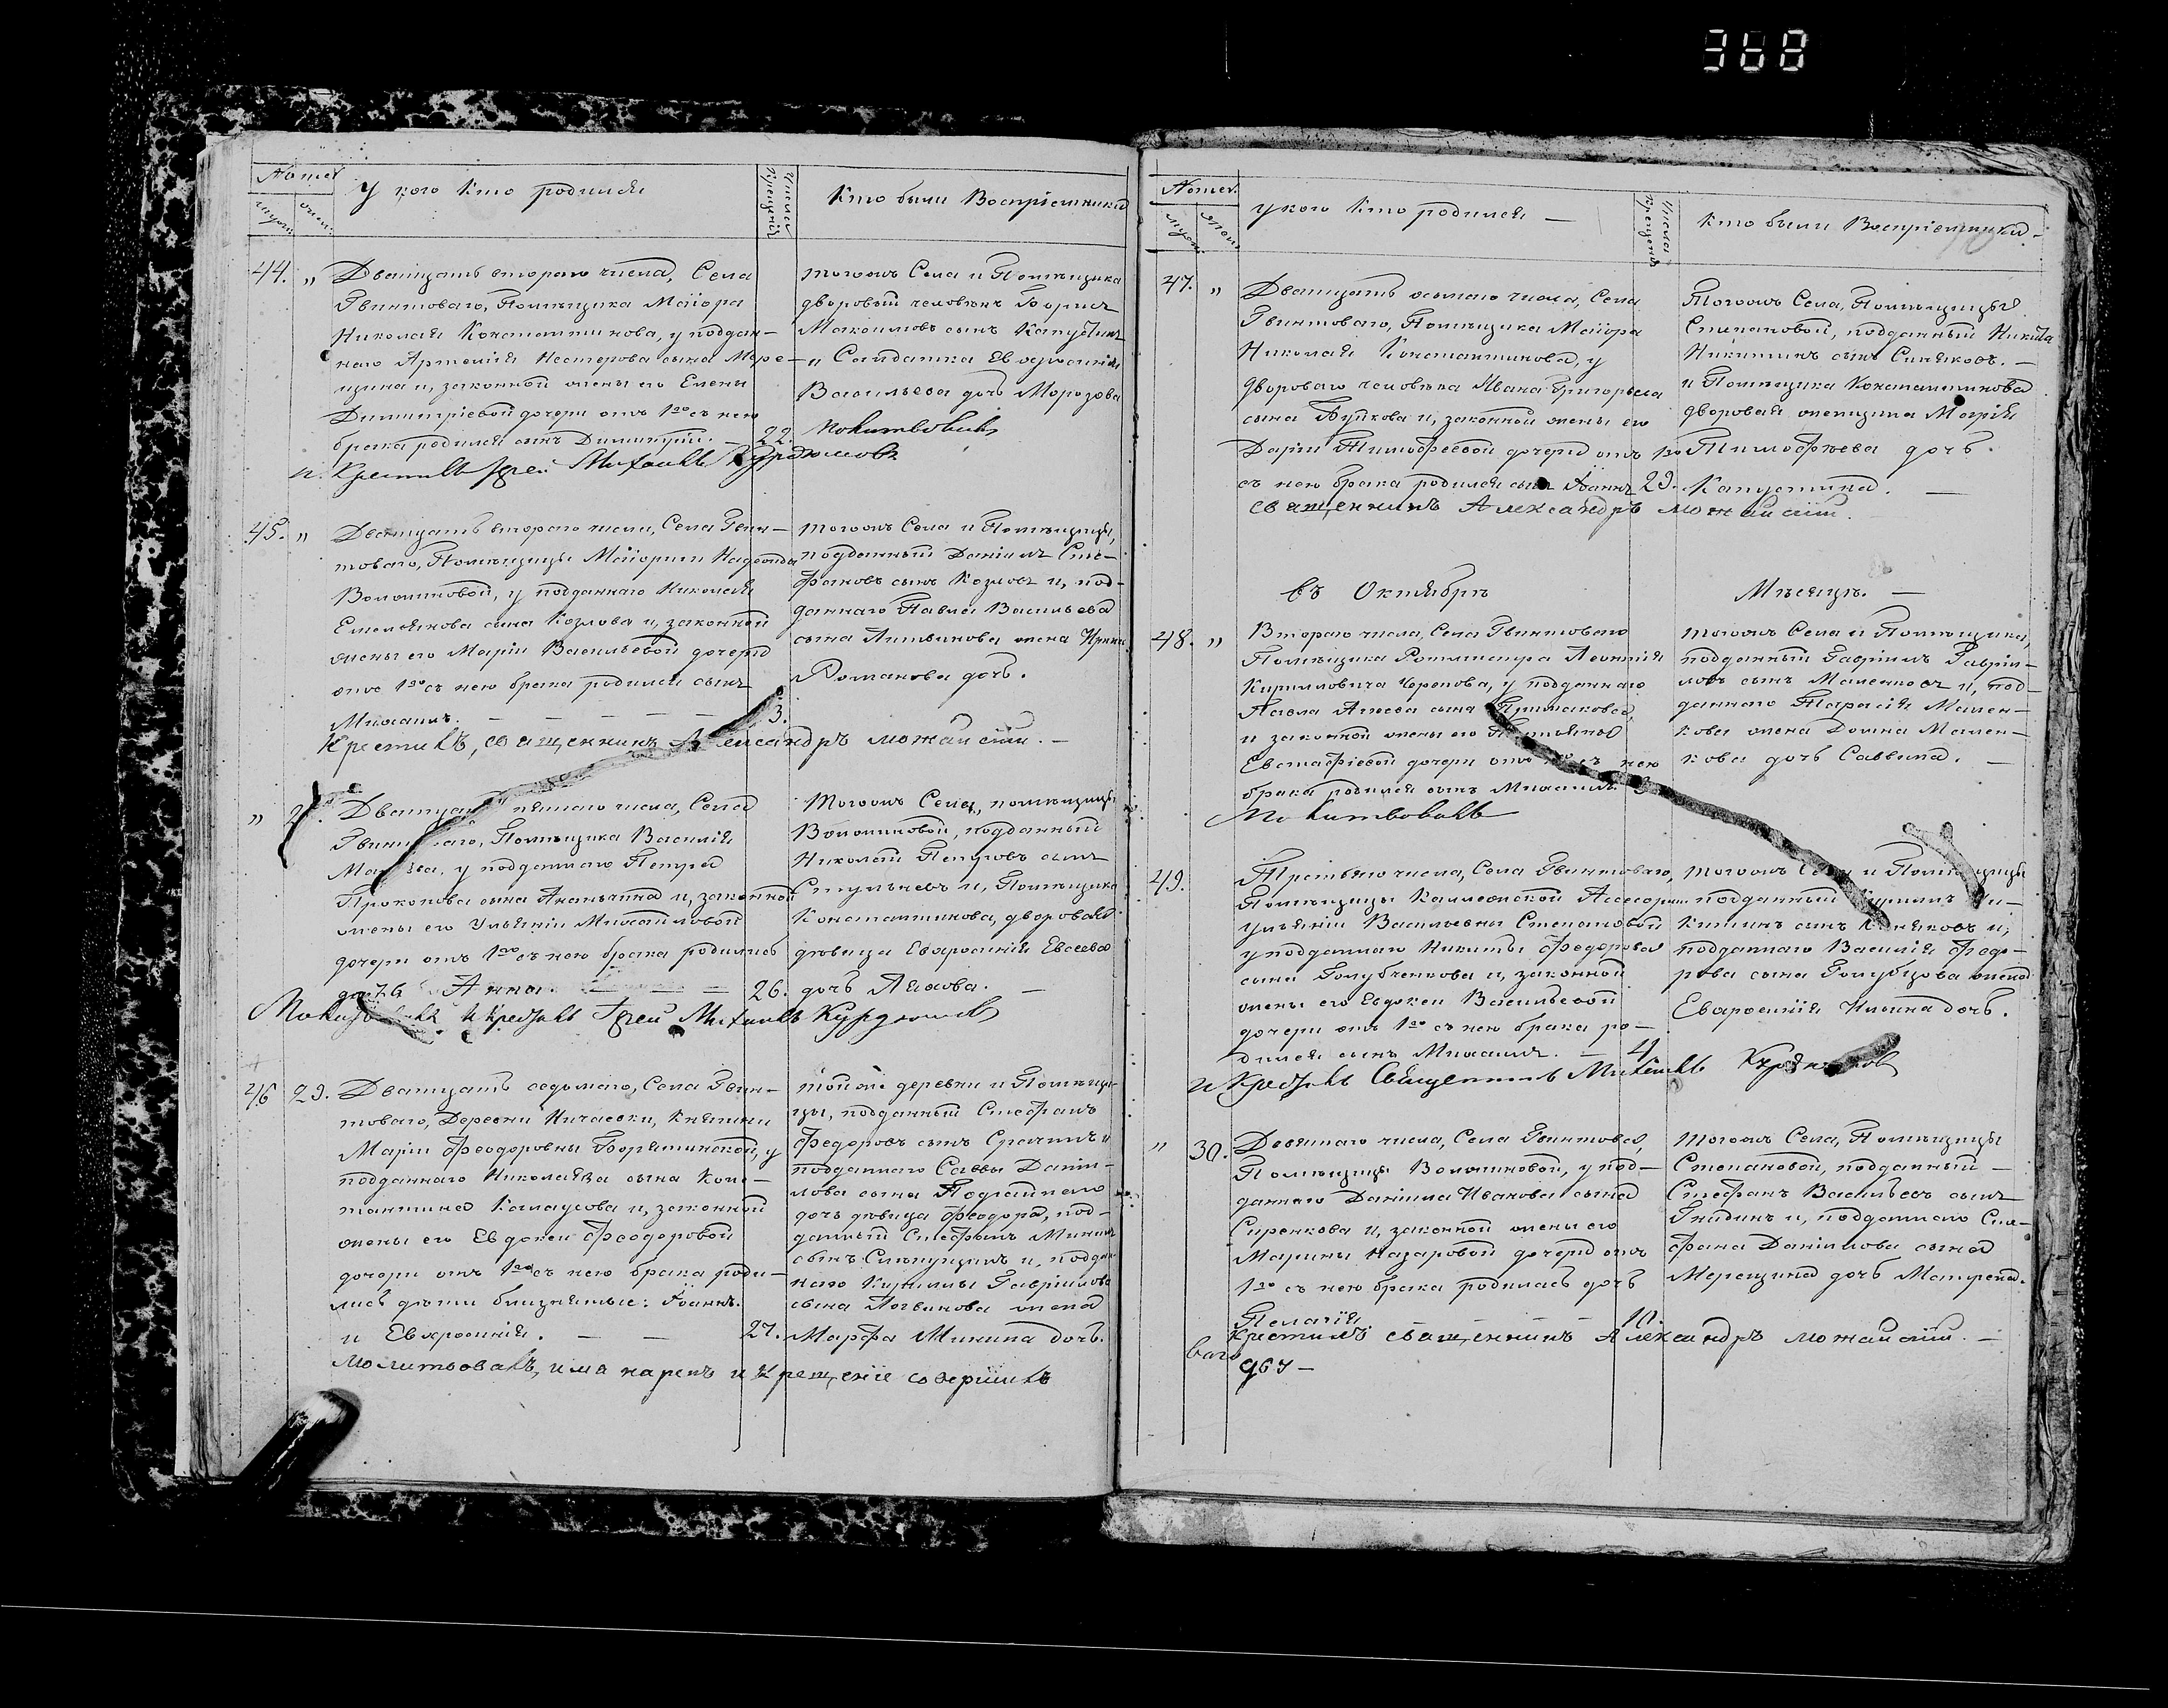 368
Номер
У кого кто родился
Число крещенiя
Кто были Воспрiемники
муж.
жен.
44. „ Двадцать втораго числа, Села
Гвинтоваго, Помѣщика Маiора
Николая Константинова, у поддан-
наго Артемiя Нестерова сына Мере-
щина и, законной жены его Елены
Димитрiевой дочери отъ 1го съ нею
брака родился сынъ Димитрiй. — 22.
тогожъ Села и Помѣщика
дворовый человѣкъ Борисъ
Максимовъ сынъ Капустинъ
и Солдатка Евфросинiя
Васильева дочь Морозова
Молитвовалъ
и Крестилъ Iерей Михаилъ Курдюмовъ
45. „ Двадцать втораго числа, Села Гвин-
товаго, Помѣщицы Маiорши Надежды
Воложиновой, у подданнаго Николая
Емельянова сына Козлова и, законной
жены его Марiи Васильевой дочери
отъ 1го съ нею брака родился сынъ
Михаилъ. — — — — — 3.
тогожъ Села и Помѣщицы,
подданный Данiилъ Сте-
фановъ сынъ Козловъ и, под-
даннаго Павла Васильева
сына Литвинова жена Ирина
Романова дочь.
Крестилъ, священникъ Александръ можайскiй. —
„ Двадцать пятаго числа, Села
Помѣщика Василiя
у подданнаго Петра
Прокопова сына Ананьина и, законной
жены его Ульянiи Михайловой
дочери отъ 1го съ нею брака родилась
дочь Анна. — — — 26.
тогожъ Села, помѣщицы
Воложиновой, подданный
Николай Петровъ сынъ
и, Помѣщика
Константинова, дворовая
дѣвица Евфросинiя Евсеева
дочь Ляхова. —
и Крестилъ Iерей Михаилъ Курдюмовъ
46 29. Двадцать седьмаго, Села Гвин-
товаго, Деревни Ничаевки, Княгини
Марiи Феодоровны Борятинской, у
подданнаго Николая сына Конс-
тантина Калаусова и, законной
жены его Евдокеи Феодоровой
дочери отъ 1го съ нею брака роди-
лись дѣти близнятые: Iоаннъ.
и Евфросинiя. — — 27.
тойже деревни и Помѣщи-
цы, подданный Стефанъ
Федоровъ сынъ и
подданнаго Саввы Данiи-
лова сына
дочь дѣвица Феодора, под-
данный Стефанъ Мининъ
сынъ и, поддан-
наго Кириллы Гаврiилова
сына Логвинова жена
Марфа Минина дочь.
Молитвовалъ, имя нарекъ и Крещенiе совершилъ
Номер.
у кого кто родился —
Число Крещенiя
Кто были Воспрiемники. —
муж.
жен.
47. „ Двадцать осьмаго числа, Села
Гвинтоваго, Помѣщика Маiора
Николая Константинова, у
двороваго человѣка Ивана Григорьева
сына и, законной жены его
Дарiи Тимофеевой дочери отъ 1го
съ нею брака родился сынъ Iоаннъ 29.
Тогожъ Села, Помѣщицы
Степановой, подданный Никита
Никитинъ сынъ Синяковъ. —
и Помѣщика Константинова
дворовая женщина Марiя
Тимофѣева дочь.
Капустина. —
священникъ Александръ можайскiй.
въ Октябрѣ Мѣсяцѣ. —
48. „ Втораго числа, Села Гвинтоваго
Помѣщика Ротмистра Леонтiя
Кирилловича Черепова, у подданнаго
Павла сына
и законной жены его
Евстафiевой дочери отъ съ нею
брака родился сынъ Михаилъ 3
тогожъ Села и Помѣщика,
подданный Гаврiилъ Гаврiи-
ловъ сынъ Маленковъ и, под-
даннаго Тарасiя Мален-
кова жена Домна Мален-
кова дочь Саввина. —
Молитвовалъ
49. Третьяго числа, Села Гвинтоваго,
Помѣщицы Коллежской Асесорши
Ульянiи Васильевны Степановой
у подданнаго Никиты Федорова
сына Голубченкова и, законной
жены его Евдокеи Васильевой
дочери отъ 1го съ нею брака ро-
дился сынъ Михаилъ. — 4
тогожъ Села и Помѣщицы
подданный Ни-
китинъ сынъ Синяковъ и,
подданнаго Василiя Федо-
рова сына Голубцова жена
Евфросинiя Ильина дочь.
и Крестилъ Священникъ Михаилъ Курдюмовъ
„ 30. Девятаго числа, Села Гвинтова,
Помѣщицы Воложиновой, у под-
даннаго Данiила Иванова сына
Сиренкова и, законной жены его
Марины Назаровой дочери отъ
1го съ нею брака родилась дочь
Пелагiя 10.
тогожъ Села, Помѣщицы
Степановой, подданный —
Стефанъ Васильевъ сынъ
Гнидинъ и, подданнаго Сте-
фана Данiилова сына
Мерещина дочь Матрена.
Крестилъ священникъ Александръ можайскiй. —